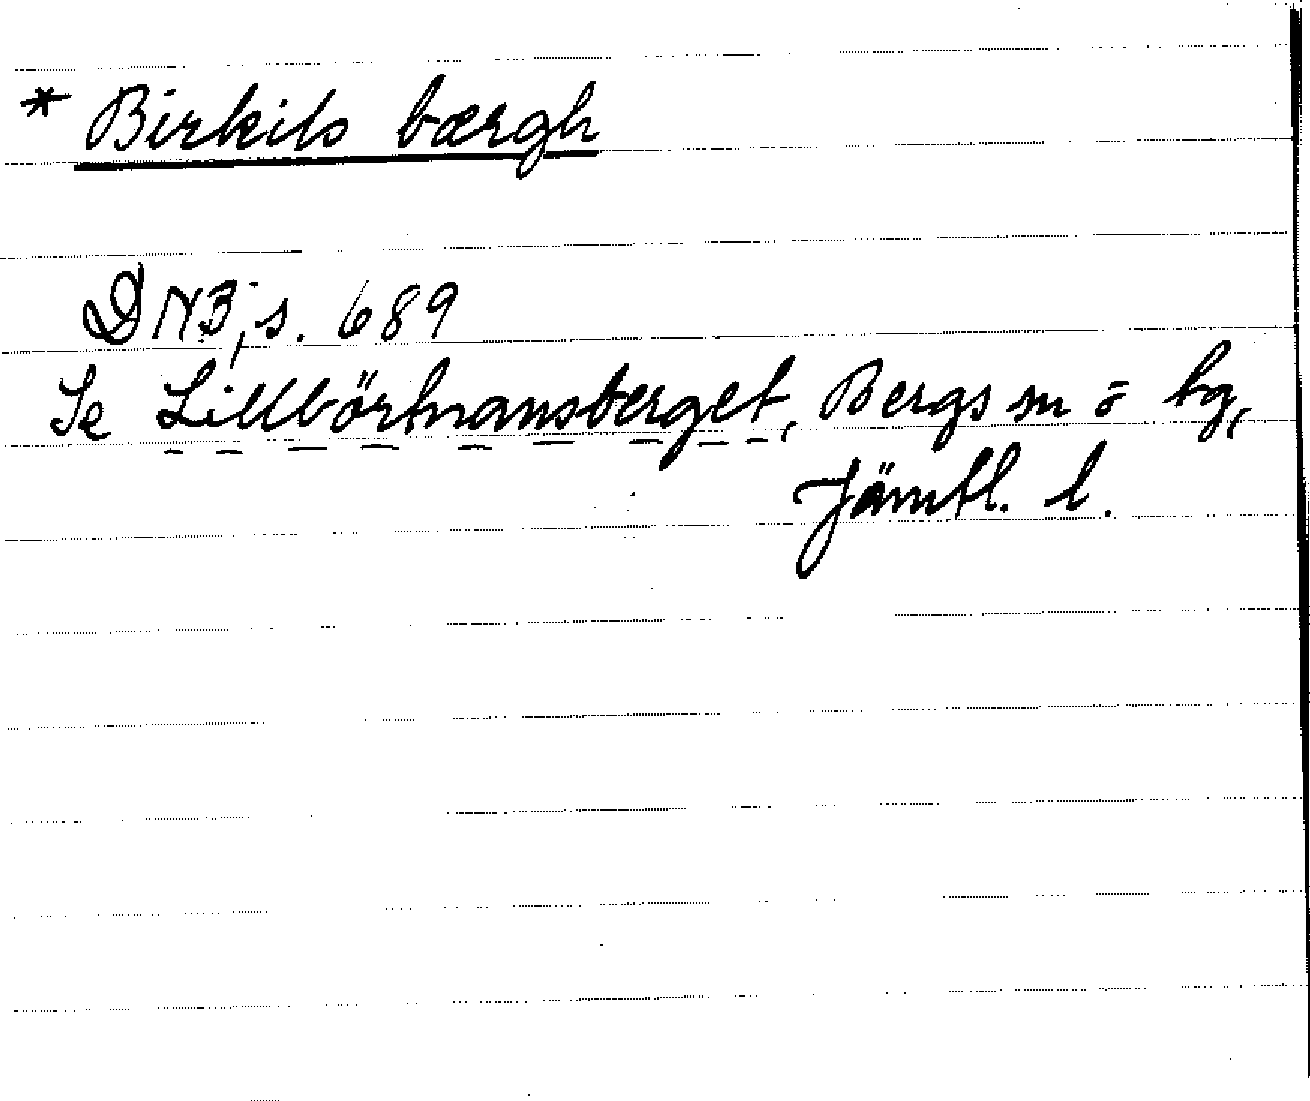 * Birkils bærgh
DN3, s. 689
Se Lillbörtnansberget, Bergs sn o hg,
Jämtl. l.